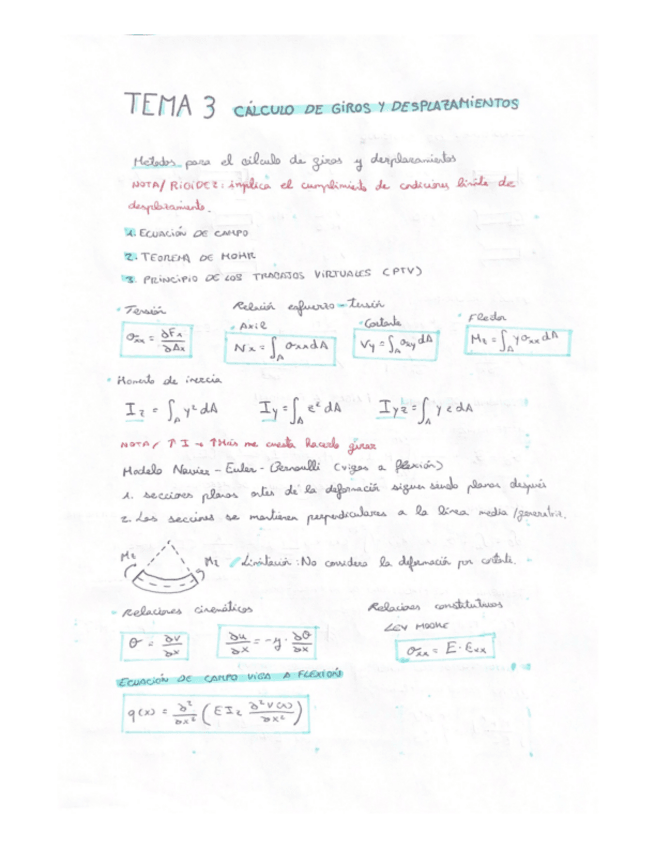 TEMA 3 CÁLCULO DE GIROS Y DESPLAZAMIENTOS
Métodos para el cálculo de giros y desplazamientos
NOTA/ RIGIDEZ: implica el cumplimiento de condiciones límite de
desplazamiento.
1. ECUACIÓN DE CAMPO
2. TEOREMA DE MOHR
3. PRINCIPIO DE LOS TRABAJOS VIRTUALES (PTV)
· Tensión Relación esfuerzo - tensión
· Axil · Cortante · Flector
σxx = ∂Fx/∂Ax Nx = ∫A σxx dA Vy = ∫A σxy dA Mz = ∫A y σxx dA
· Momento de inercia
Iz = ∫A y² dA Iy = ∫A z² dA Iyz = ∫A y z dA
NOTA/ ↑ I → ↑ Más me cuesta hacerlo girar
Modelo Navier - Euler - Bernoulli (vigas a flexión)
1. secciones planas antes de la deformación siguen siendo planas después
2. Las secciones se mantienen perpendiculares a la línea media /generatriz.
Mz Mz Limitación: No considera la deformación por cortante.
· Relaciones cinemáticas Relaciones constitutivas
LEY HOOKE
θ = ∂v/∂x ∂u/∂x = -y · ∂θ/∂x σxx = E · Exx
ECUACIÓN DE CAMPO VIGA A FLEXIÓN
q(x) = ∂²/∂x² (E Iz ∂²v(x)/∂x²)